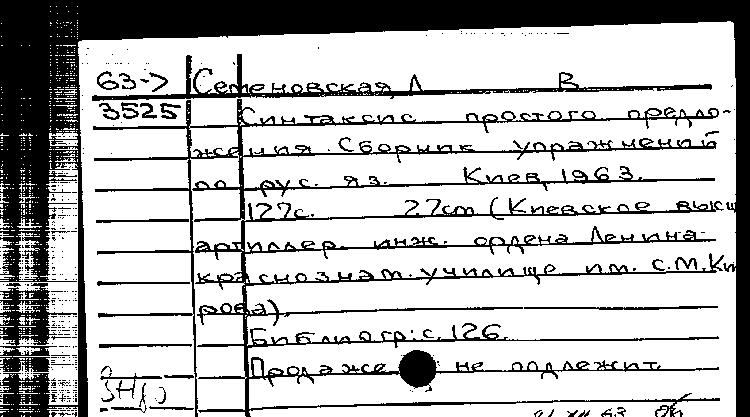 63-> Семеновская, Л В
3525 Синтаксис простого предло-
жения. Сборник упражнений
по рус. яз. Киев, 1963.
127с. 27cm (Киевское высш
артиллер. инж. ордена Ленина
краснознам. училище им. С.М.Ки
рова).
Библиогр: с. 126.
Продаже не подлежит.